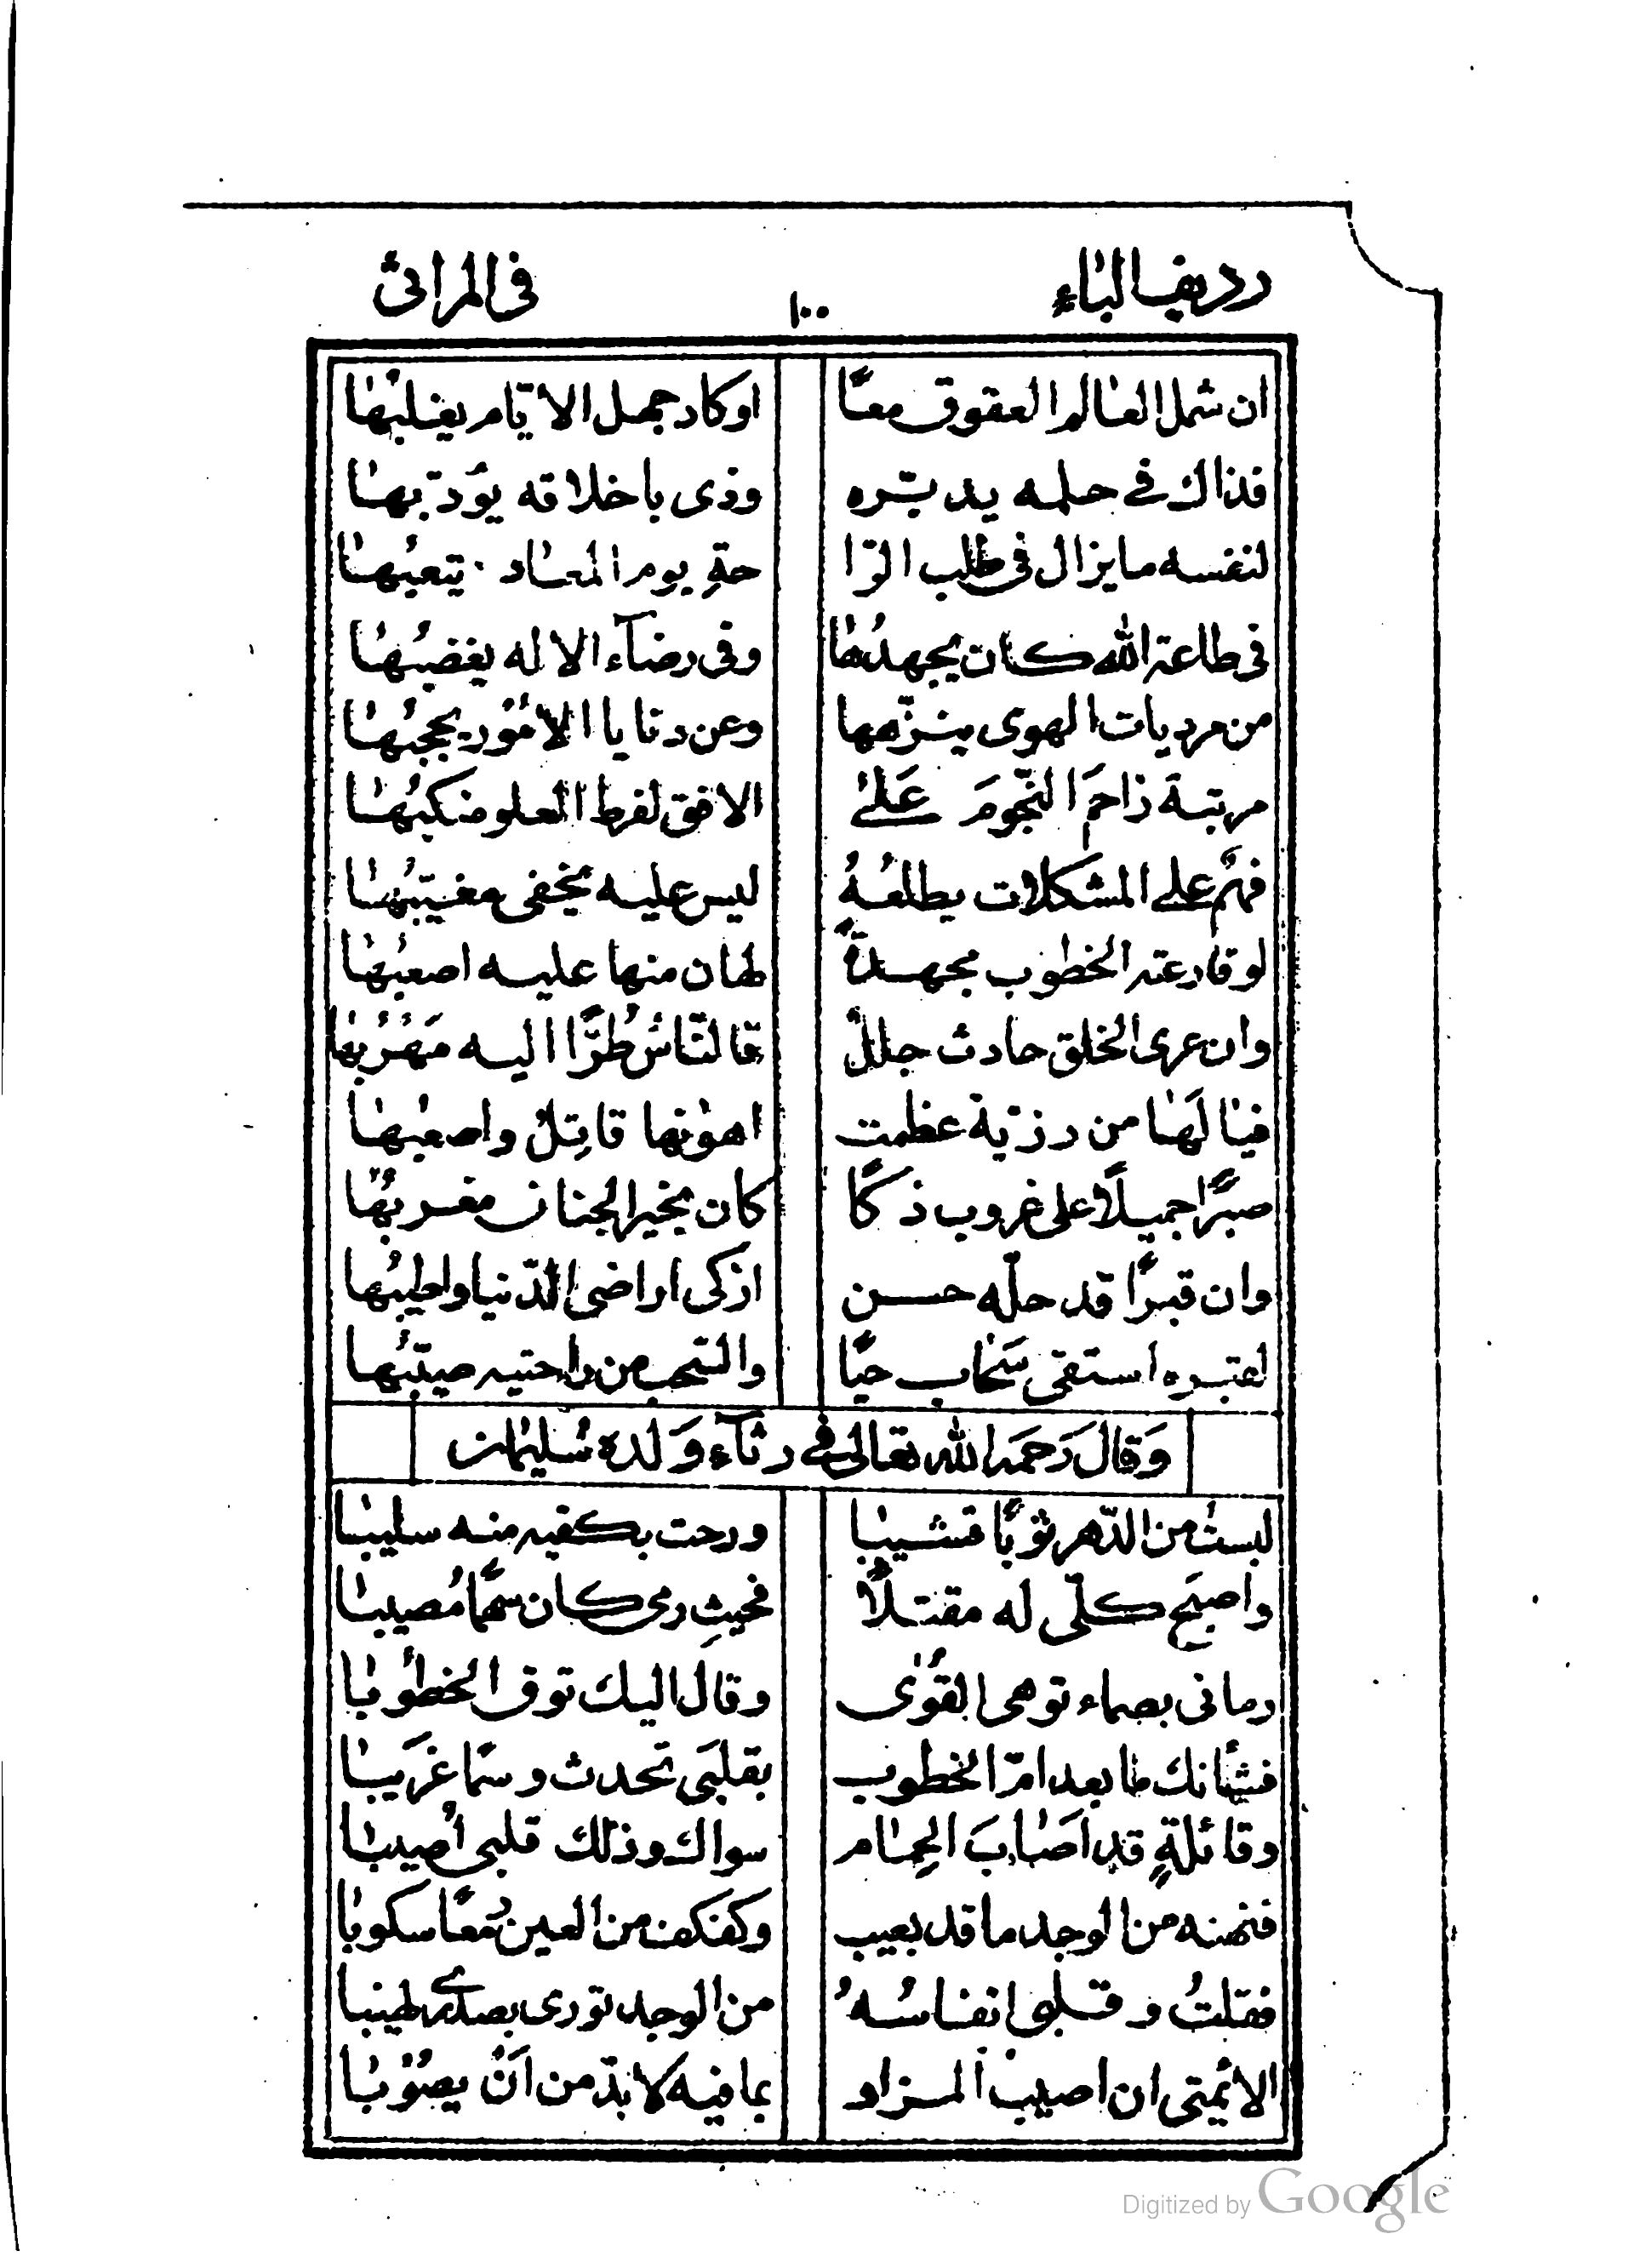 رديف الباء ١٠٠ في المراثي
ان شمل العالم العقوق معًا اوكاد جهل الايّام يغلبُها
فذاك في حلمه يدبّره وذى باخلاقه يؤدّبها
لنفسه مايزال في طلب الرّا حةِ يوم المعاد يتعبُها
في طاعته الله كان يجهدُها وفى رضآء الاله يغضبُها
من مرديات الهوى ينزّهها وعن دنايا الامُور يحجبُها
مرتبة زاحمَ النّجومَ عَلىٰ الافق لفرط العلو منكبُها
فهمٌ على المشكلات يطلعُهُ ليس عليه يخفى مغيّبُها
لوقارعته الخطوب مجهدةً لهان منها عليه اصعبُها
وان عرى الخلق حادث جللٌ فالنّاسُ طُرًّا اليه مَهْرُبها
فيا لَها من رزية عظمت اهونها قاتِلٌ واصعبها
صبرًا جميلًا على غروب ذكًا كان بخير الجنان مغربُها
وان قبرًا قد حلّه حسن ازكى اراضى الدّنيا واطيبُها
لقبره استقى سَحاب حيًا والسّحب من راحتيه صيّبُها
وَقالَ رَحمَه الله تعالى في رثآء وَلده سُليمان
لبستُ من الدّهر ثوبًا قشيبا ورحت بكفيه منه سليبا
واصبح كلّى له مقتلًا فحيثِ رمى كان سهمًا مُصيبا
رمانى بصماء توهى القوُى وقال اليك توق الخطُوبا
فشأنك ما بعد امّ الخطوب بقلبَى تحدث وسمًا غَريبا
وقائلةٍ قد اصَابَ الحِمام سواك وذلك قلبى أصيبا
فنهنه من الوجد ما قد بعيب وكفكف من العين دمعًا سكوبا
فقلتُ وقلبى انفاسُهُ من الوجد تورى بصدرى لهيبا
الائمتى ان اصيب المزاد بما فيه لابدّ من اَنْ يصُوْبا
Digitized by Google